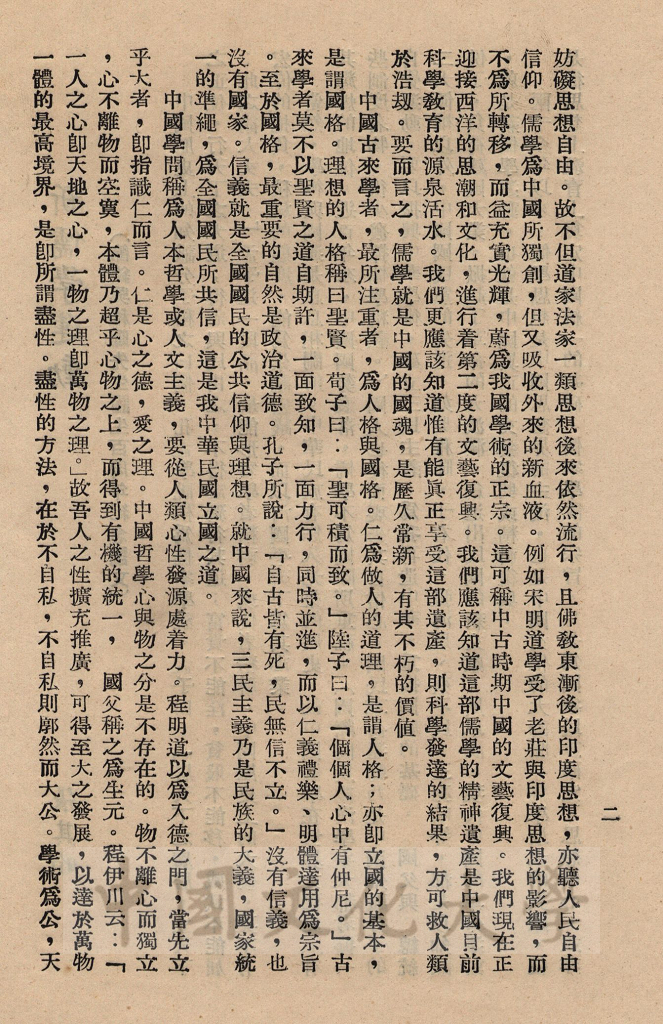 妨礙思想自由。故不但道家法家一類思想後來依然流行，且佛敎東漸後的印度思想，亦聽人民自由
信仰。儒學爲中國所獨創，但又吸收外來的新血液。例如宋明道學受了老莊與印度思想的影響，而
不爲所轉移，而益充實光輝，蔚爲我國學術的正宗。這可稱中古時期中國的文藝復興。我們現在正
迎接西洋的思潮和文化，進行着第二度的文藝復興。我們應該知道這部儒學的精神遺產是中國目前
科學敎育的源泉活水。我們更應該知道惟有能眞正享受這部遺產，則科學發達的結果，方可救人類
於浩刼。要而言之，儒學就是中國的國魂，是歷久常新，有其不朽的價値。
中國古來學者，最所注重者，爲人格與國格。仁爲做人的道理，是謂人格；亦卽立國的基本，
是謂國格。理想的人格稱曰聖賢。荀子曰：「聖可積而致。」陸子曰：「個個人心中有仲尼。」古
來學者莫不以聖賢之道自期許，一面致知，一面力行，同時並進，而以仁義禮樂、明體達用爲宗旨
。至於國格，最重要的自然是政治道德。孔子所說：「自古皆有死，民無信不立。」沒有信義，也
沒有國家。信義就是全國國民的公共信仰與理想。就中國來說，三民主義乃是民族的大義，國家統
一的準繩，爲全國國民所共信，這是我中華民國立國之道。
中國學問稱爲人本哲學或人文主義，要從人類心性發源處着力。程明道以爲入德之門，當先立
乎大者，卽指識仁而言。仁是心之德，愛之理。中國哲學心與物之分是不存在的。物不離心而獨立
，心不離物而空寞，本體乃超乎心物之上，而得到有機的統一，　國父稱之爲生元。程伊川云：「
一人之心卽天地之心，一物之理卽萬物之理。」故吾人之性擴充推廣，可得至大之發展，以達於萬物
一體的最高境界，是卽所謂盡性。盡性的方法，在於不自私，不自私則廓然而大公。學術爲公，天
二
中國文化大學